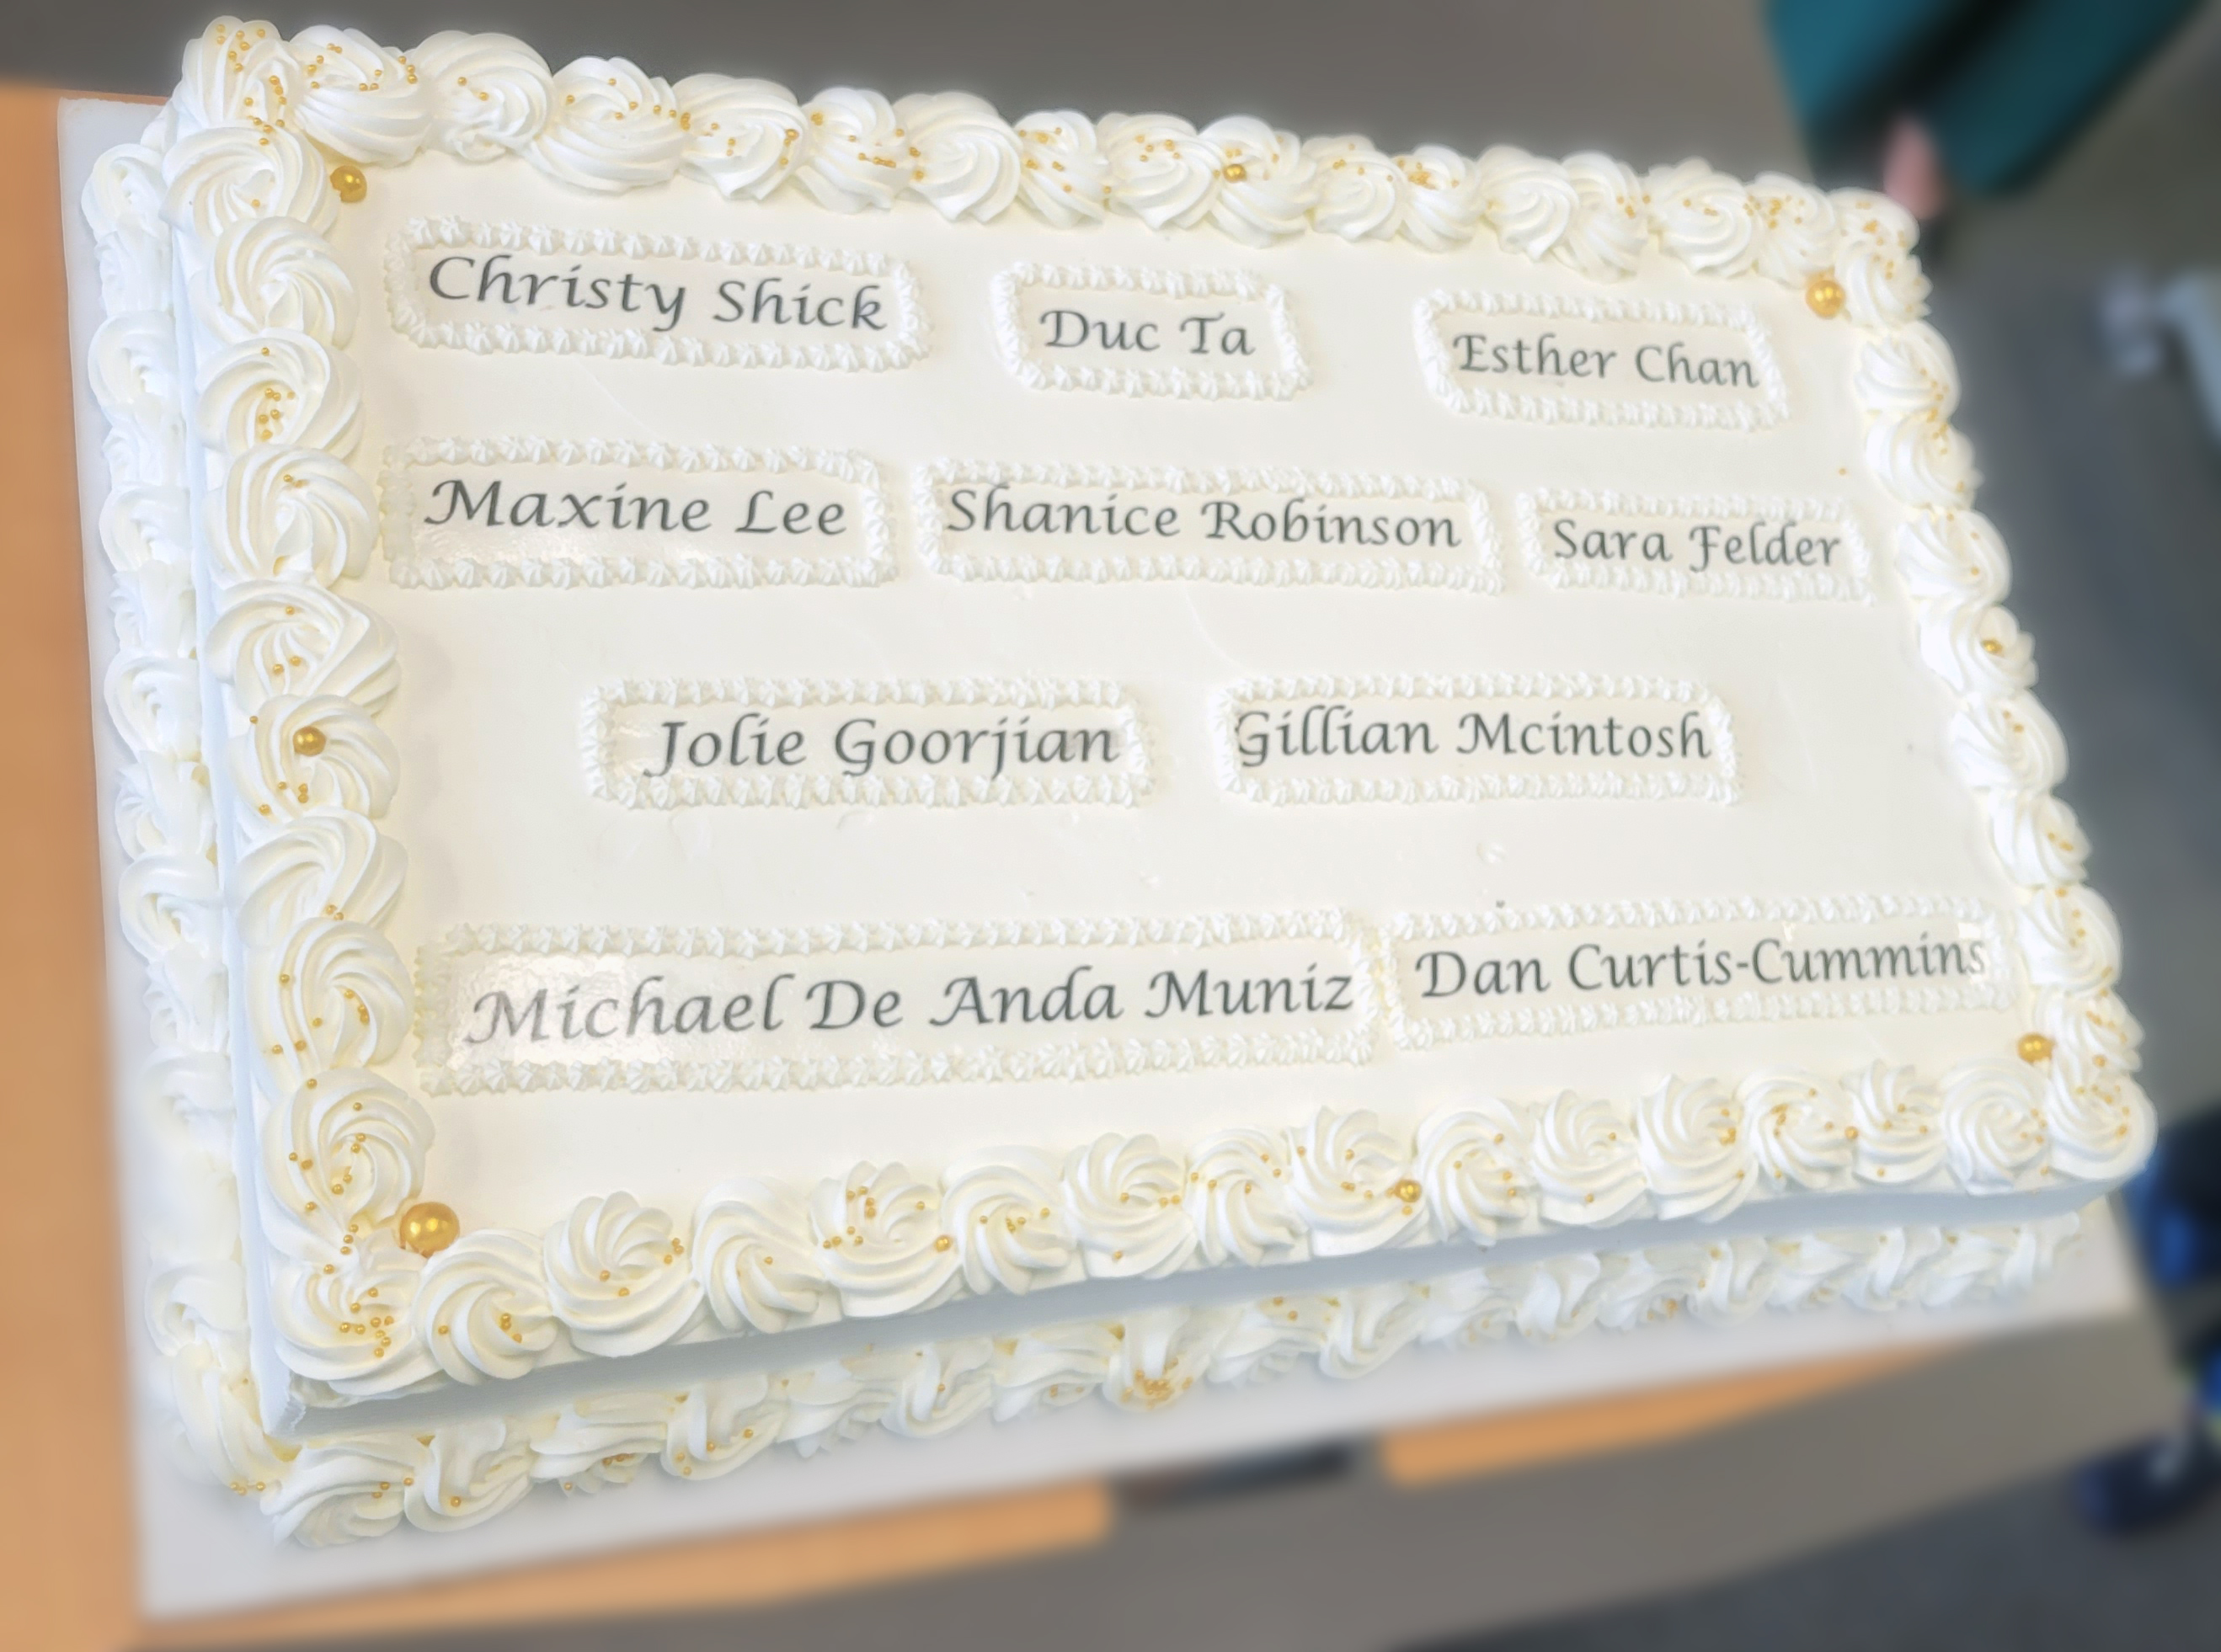 Christy Shick Duc Ta Esther Chan
Maxine Lee Shanice Robinson Sara Felder
Jolie Goorjian Gillian Mcintosh
Michael De Anda Muniz Dan Curtis-Cummins